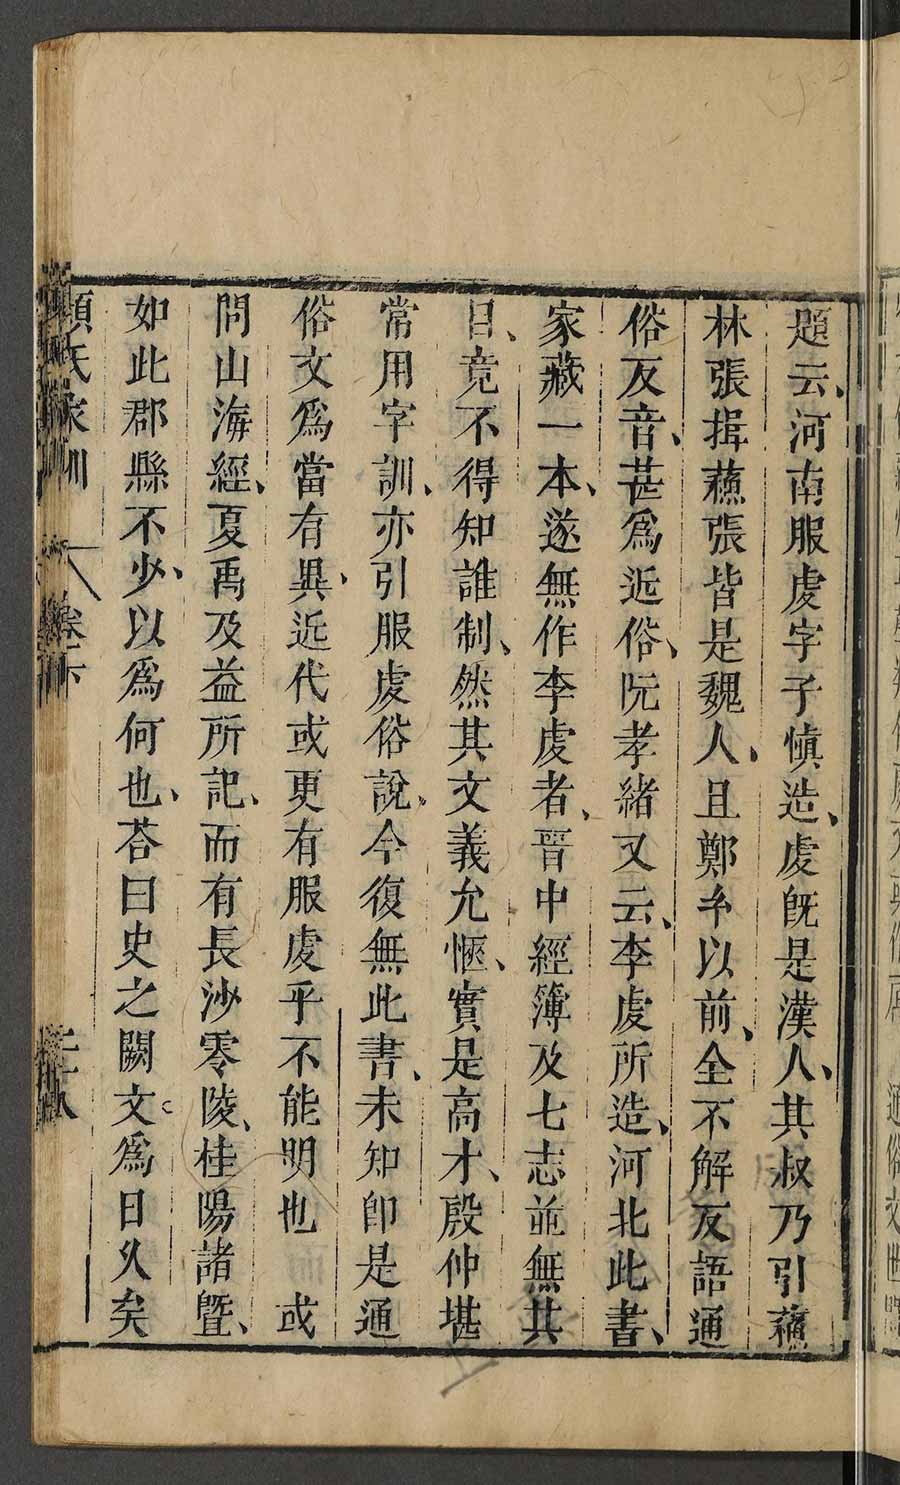 題云、河南服虔字子愼造、虔旣是漢人、其叔乃引蘇
林張揖蘇張皆是魏人、且鄭𤣥以前、全不解反語通
俗反音、甚爲近俗、阮孝緒又云、李虔所造、河北此書、
家藏一本、遂無作李虔者、晉中經簿及七志並無其
目、竟不得知誰制、然其文義允愜、實是高才、殷仲堪
常用字訓、亦引服虔俗說、今復無此書、未知卽是通
俗文爲當有異、近代或更有服虔乎不能明也　或
問山海經、夏禹及益所記、而有長沙零陵、桂陽諸曁、
如此郡縣不少、以爲何也、荅曰史之闕文爲日久矣
顏氏家訓　卷下　二十八